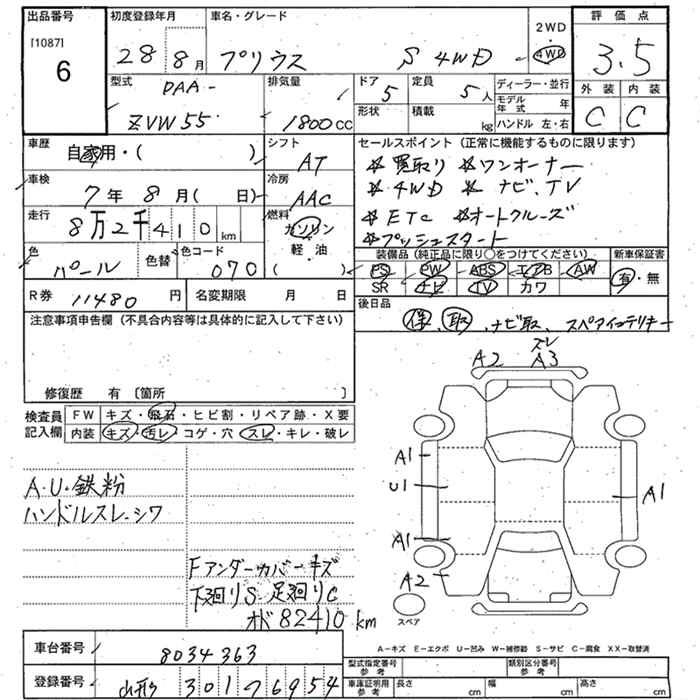 出品番号 初度登録年月 車名・グレード 2WD 評価点
[1087] ・
6 28 8月 プリウス S 4WD 4WD 3.5
型式 DAA- 排気量 ドア 5 定員 5人 ディーラー・並行 外装 内装
形状 積載 kg モデル年式 年 C C
ZVW55 1800cc ハンドル 左・右
車歴 自家用・( ) シフト AT セールスポイント (正常に機能するものに限ります)
車検 7年 8月( 日) 冷房 AAC ☆買取り ☆ワンオーナー
☆4WD ☆ナビ、TV
走行 8万2千410km 燃料 ガソリン ☆ETC ☆オートクルーズ
軽油 ☆プッシュスタート
色 パール 色替 色コード 070 ( ) 装備品 (純正品に限り○をつけてください) 新車保証書
PS PW ABS エアB AW 有・無
R券 11480円 名変期限 月 日 SR ナビ TV カワ
注意事項申告欄 (不具合内容等は具体的に記入して下さい) 後日品
保、取、ナビ取、スペアインテリキー
修復歴 有 〔箇所 〕
検査員記入欄 FW キズ・飛石・ヒビ割・リペア跡・X要
内装 キズ・汚レ・コゲ・穴・スレ・キレ・破レ
スレ
A2 A3
A1
A・U・鉄粉 U1 A1
ハンドルスレ-シワ
A1
Fアンダーカバーキズ A2
下廻りS 足廻りC
オド82410km スペア
A-キズ E-エクボ U-凹み W-補修跡 S-サビ C-腐食 XX-取替済
車台番号 8034363 型式指定番号 参考 類別区分番号 参考
登録番号 山形 301 76954 車庫証明用 参考 長さ cm 幅 cm 高さ cm